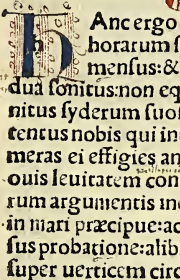 Hanc ergo
horarum s
mensus:&
dua sonitus:non eq
nitus syderum suo
tentus nobis qui in
meras ei effigies an
ouis leuitatem con
rum argumentis ind
in mari præcipue:ac
sus probatione:alib
super uerticem circ